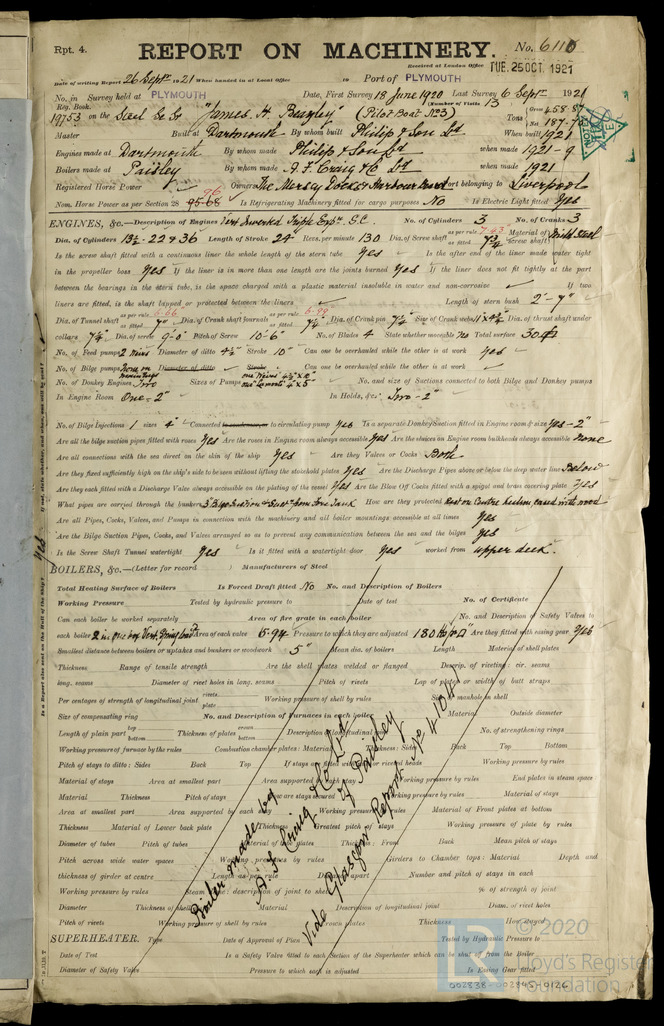 Rpt. 4.
REPORT ON MACHINERY.
No. 6110
Received at London Office TUE. 25 OCT. 1921
Date of writing Report 26 Septr 1921 When handed in at Local Office 10 Port of PLYMOUTH
No. in Survey held at PLYMOUTH Date, First Survey 18 June 1920 Last Survey 6 Septr 1921
Reg. Book. (Number of Visits 13
19753 on the Steel "James H. Beazley" (Pilot Boat No 3) Tons Gross 458.87 Net 187.7
Master Built at Dartmouth By whom built Philip & Son Ltd When built 1921
Engines made at Dartmouth By whom made Philip & Son Ltd when made 1921-9
Boilers made at Paisley By whom made A. F. Craig & Co Ltd when made 1921
Registered Horse Power Owners The Mersey Docks & Harbour Board Port belonging to Liverpool
Nom. Horse Power as per Section 28 96 95.68 Is Refrigerating Machinery fitted for cargo purposes No Is Electric Light fitted Yes
ENGINES, &c.—Description of Engines Vert. Inverted Triple Expn S.C. No. of Cylinders 3 No. of Cranks 3
Dia. of Cylinders 13½ - 22 & 36 Length of Stroke 24 Revs. per minute 130 Dia. of Screw shaft as per rule 7.43 as fitted 7¾ Material of screw shaft Mild Steel
Is the screw shaft fitted with a continuous liner the whole length of the stern tube Yes Is the after end of the liner made water tight
in the propeller boss Yes If the liner is in more than one length are the joints burned Yes If the liner does not fit tightly at the part
between the bearings in the stern tube, is the space charged with a plastic material insoluble in water and non-corrosive If two
liners are fitted, is the shaft lapped or protected between the liners Length of stern bush 2'-7"
Dia. of Tunnel shaft as per rule 6.66 as fitted 7" Dia. of Crank shaft journals as per rule 6.99 as fitted 7¼ Dia. of Crank pin 7¼ Size of Crank webs 11 x 4¾ Dia. of thrust shaft under
collars 7¼ Dia. of screw 9'-0" Pitch of Screw 10'-6" No. of Blades 4 State whether moveable No Total surface 30
No. of Feed pumps 2 Mains Diameter of ditto 4½ Stroke 10" Can one be overhauled while the other is at work Yes
No. of Bilge pumps None on Main Engs Diameter of ditto Stroke Can one be overhauled while the other is at work
No. of Donkey Engines Two Sizes of Pumps No. and size of Suctions connected to both Bilge and Donkey pumps
In Engine Room One - 2" In Holds, &c. Two - 2"
No. of Bilge Injections 1 sizes 4" Connected to condenser, or to circulating pump Yes Is a separate Donkey Suction fitted in Engine room & size Yes - 2"
Are all the bilge suction pipes fitted with roses Yes Are the roses in Engine room always accessible Yes Are the sluices on Engine room bulkheads always accessible None
Are all connections with the sea direct on the skin of the ship Yes Are they Valves or Cocks Both
Are they fixed sufficiently high on the ship's side to be seen without lifting the stokehold plates Yes Are the Discharge Pipes above or below the deep water line Below
Are they each fitted with a Discharge Valve always accessible on the plating of the vessel Yes Are the Blow Off Cocks fitted with a spigot and brass covering plate Yes
What pipes are carried through the bunkers How are they protected cased with wood
Are all Pipes, Cocks, Valves, and Pumps in connection with the machinery and all boiler mountings accessible at all times Yes
Are the Bilge Suction Pipes, Cocks, and Valves arranged so as to prevent any communication between the sea and the bilges Yes
Is the Screw Shaft Tunnel watertight Yes Is it fitted with a watertight door Yes worked from upper deck.
BOILERS, &c.—(Letter for record ) Manufacturers of Steel
Total Heating Surface of Boilers Is Forced Draft fitted No No. and Description of Boilers
Working Pressure Tested by hydraulic pressure to Date of test No. of Certificate
Can each boiler be worked separately Area of fire grate in each boiler No. and Description of Safety Valves to
each boiler 2 in one box Vert. Spring load Area of each valve 5.94 Pressure to which they are adjusted 180 Are they fitted with easing gear Yes
Smallest distance between boilers or uptakes and bunkers or woodwork 5" Mean dia. of boilers Length Material of shell plates
Thickness Range of tensile strength Are the shell plates welded or flanged Descrip. of riveting: cir. seams
long. seams Diameter of rivet holes in long. seams Pitch of rivets Lap of plates or width of butt straps
Per centages of strength of longitudinal joint rivets plate Working pressure of shell by rules Size of manhole in shell
Size of compensating ring No. and Description of Furnaces in each boiler Material Outside diameter
Length of plain part top bottom Thickness of plates crown bottom Description of longitudinal joint No. of strengthening rings
Working pressure of furnace by the rules Combustion chamber plates: Material Thickness: Sides Back Top Bottom
Pitch of stays to ditto: Sides Back Top If stays are fitted with nuts or riveted heads Working pressure by rules
Material of stays Area at smallest part Area supported by each stay Working pressure by rules End plates in steam space
Material Thickness Pitch of stays How are stays secured Working pressure by rules Material of stays
Area at smallest part Area supported by each stay Working pressure by rules Material of Front plates at bottom
Thickness Material of Lower back plate Thickness Greatest pitch of stays Working pressure of plate by rules
Diameter of tubes Pitch of tubes Material of tube plates Thickness: Front Back Mean pitch of stays
Pitch across wide water spaces Working pressures by rules Girders to Chamber tops: Material Depth and
thickness of girder at centre Length as per rule Distance apart Number and pitch of stays in each
Working pressure by rules Steam dome: description of joint to shell % of strength of joint
Diameter Thickness of shell Material Description of longitudinal joint Diam. of rivet holes
Pitch of rivets Working pressure of shell by rules Crown plates Thickness How stayed
Boiler made by
A. F. Craig & Co Ltd
of Paisley
Vide Glasgow Report No 4108
SUPERHEATER. Type Date of Approval of Plan Tested by Hydraulic Pressure to
Date of Test Is a Safety Valve fitted to each Section of the Superheater which can be shut off from the Boiler
Diameter of Safety Valve Pressure to which each is adjusted Is Easing Gear fitted
© 2020
Lloyd's Register
Foundation
002838-002845-0126